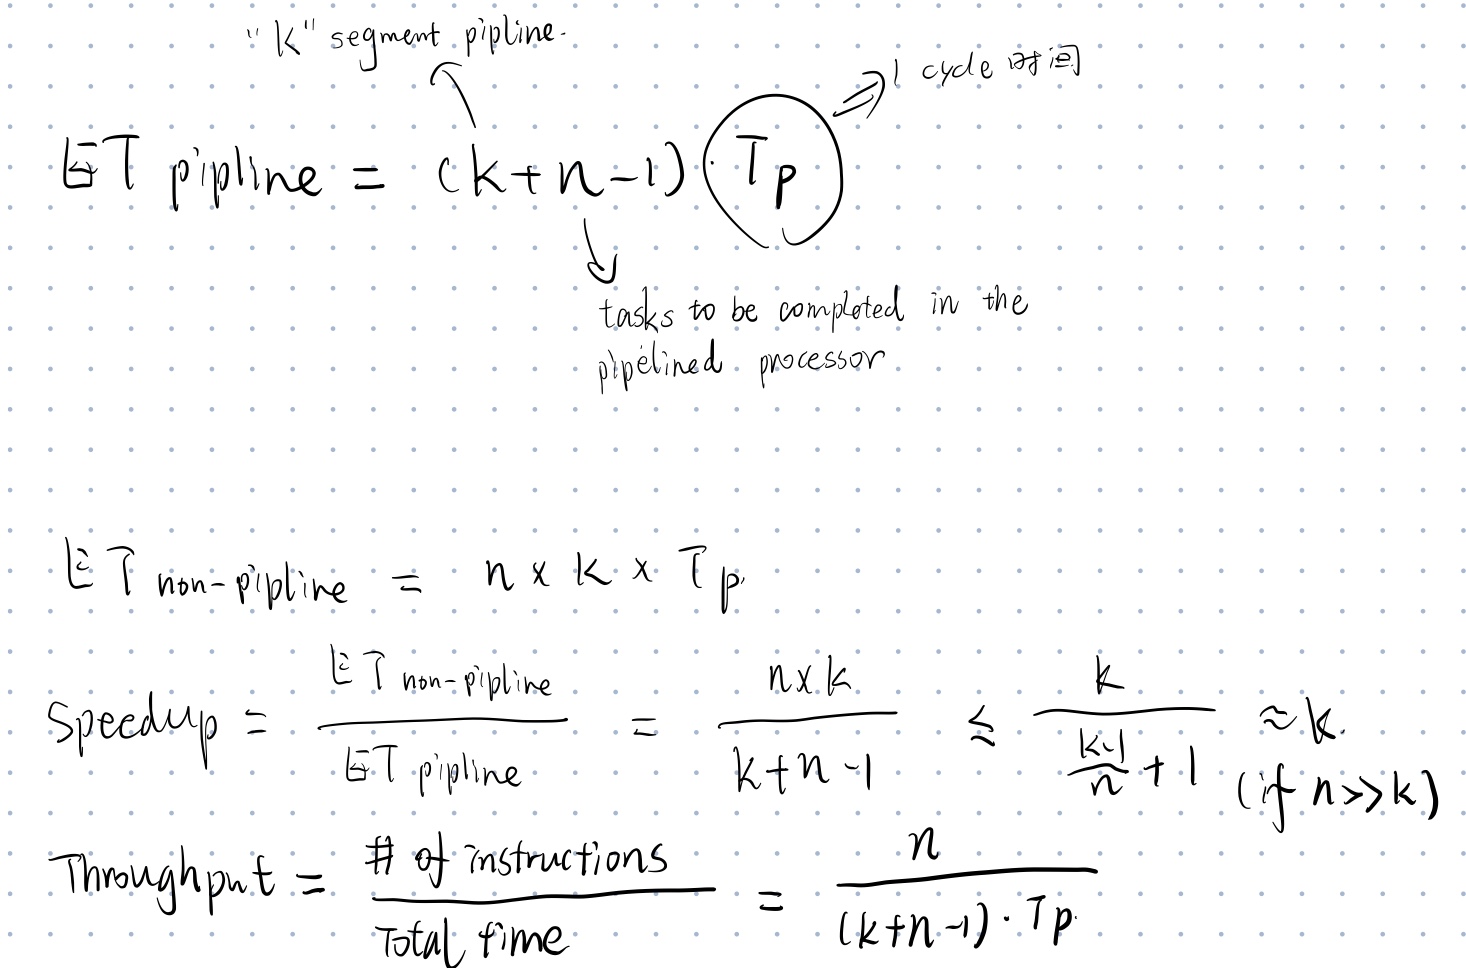 "K" segment pipline.
1 cycle 时间
ET pipline = (k+n-1) · Tp
tasks to be completed in the
pipelined processor
ET non-pipline = n × k × Tp
Speedup = ET non-pipline / ET pipline = n×k / k+n-1 ≤ k / k-1/n + 1 ≈ k.
(if n>>k)
Throughput = # of instructions / Total time = n / (k+n-1) · Tp